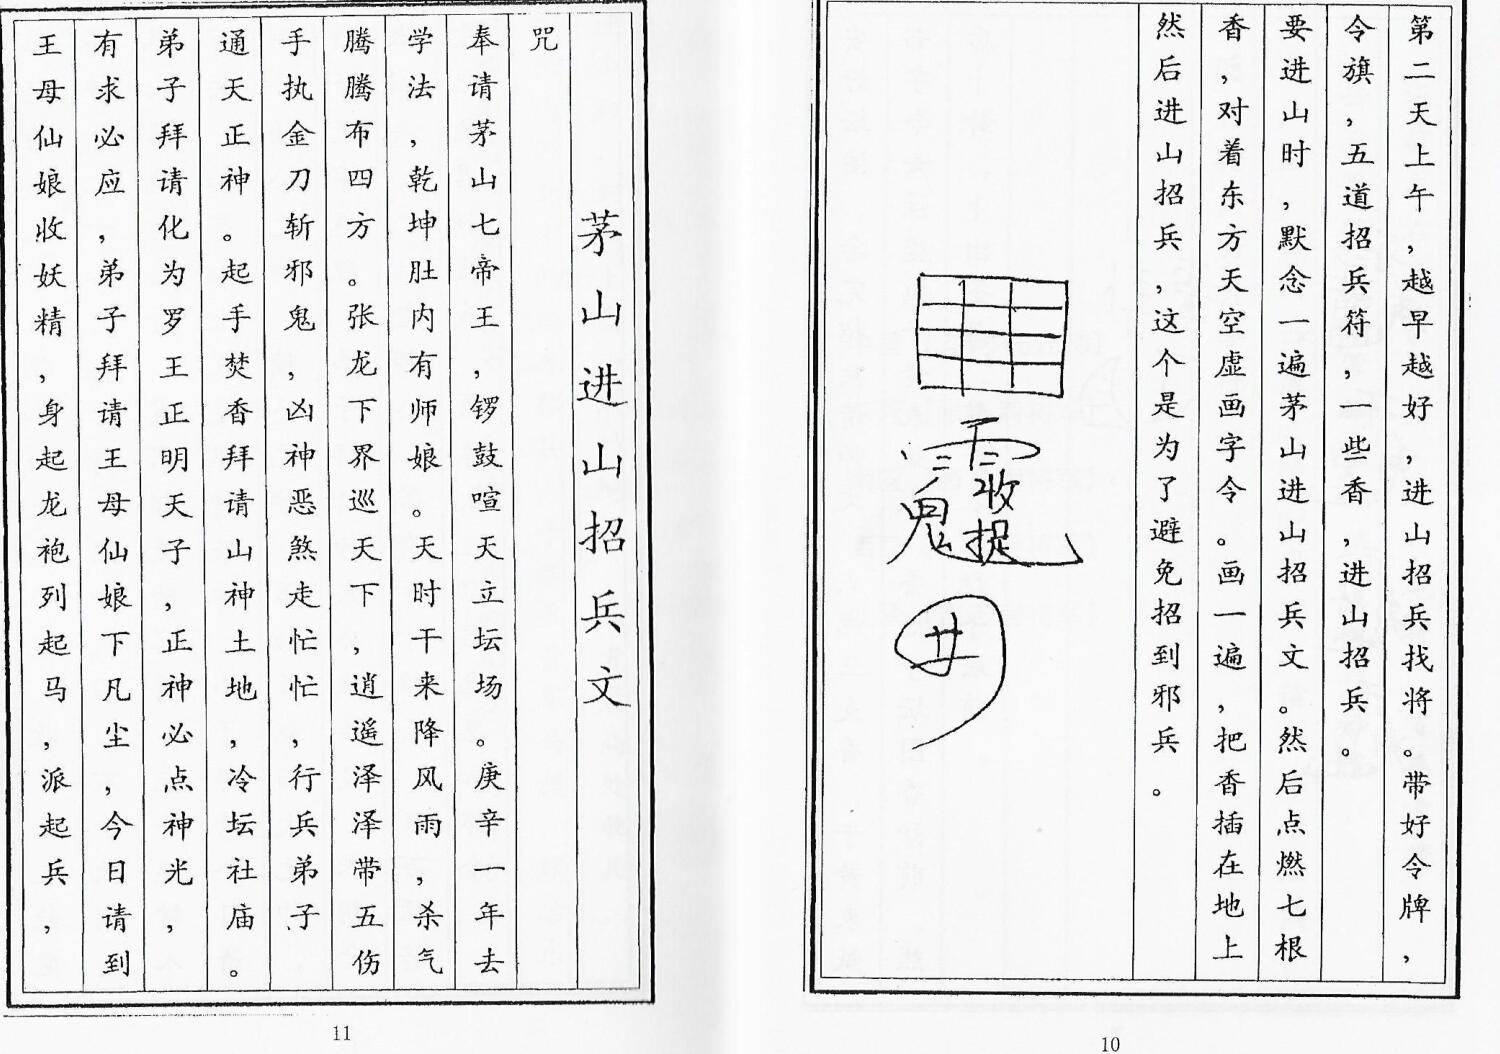 第二天上午，越早越好，进山招兵找将。带好令牌，
令旗，五道招兵符，一些香，进山招兵。
要进山时，默念一遍茅山进山招兵文。然后点燃七根
香，对着东方天空虚画字令。画一遍，把香插在地上
然后进山招兵，这个是为了避免招到邪兵。
10
茅山进山招兵文
咒
奉请茅山七帝王，锣鼓喧天立坛场。庚辛一年去
学法，乾坤肚内有师娘。天时干来降风雨，杀气
腾腾布四方。张龙下界巡天下，逍遥泽泽带五伤
手执金刀斩邪鬼，凶神恶煞走忙忙，行兵弟子
通天正神。起手焚香拜请山神土地，冷坛社庙。
弟子拜请化为罗王正明天子，正神必点神光，
有求必应，弟子拜请王母仙娘下凡尘，今日请到
王母仙娘收妖精，身起龙袍列起马，派起兵，
11